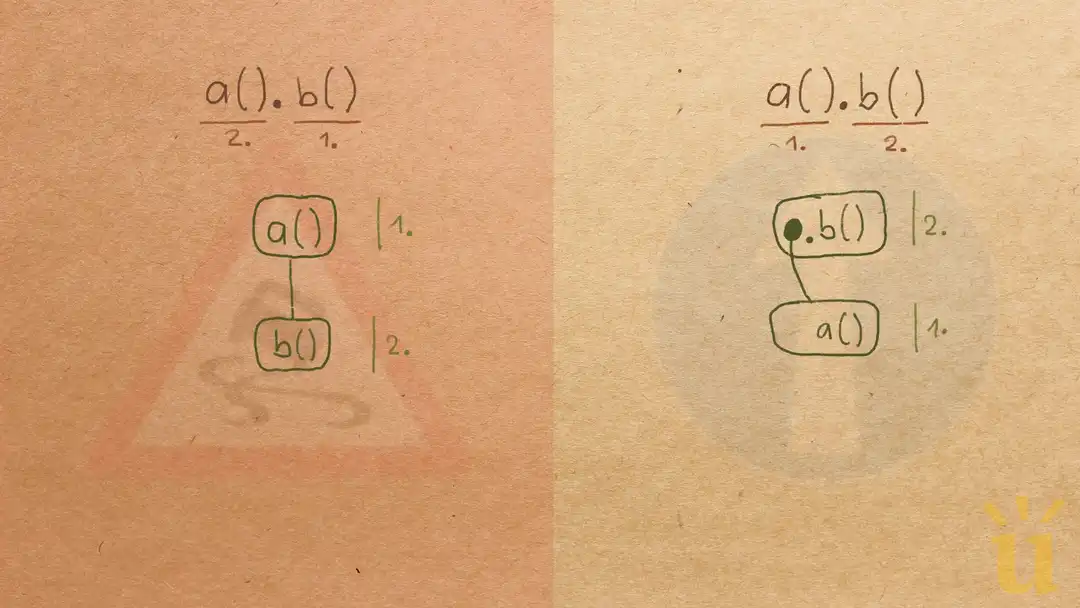 a().b()
2. 1.
a() 1.
b() 2.
a().b()
1. 2.
.b() 2.
a() 1.
u